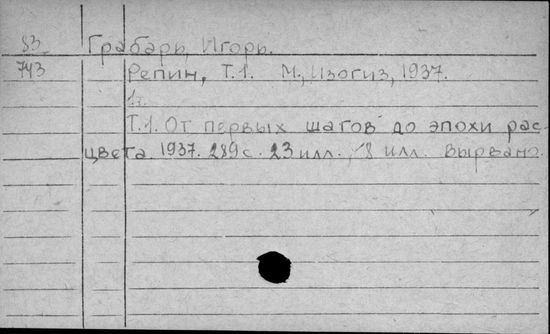 83 Грабарь, Игорь.
743 Репин, Т.1. М., Изогиз, 1937.
1т.
Т.1. От первых шагов до эпохи рас-
цвета. 1937. 289 с. 23 илл. /8 илл. вырвано.